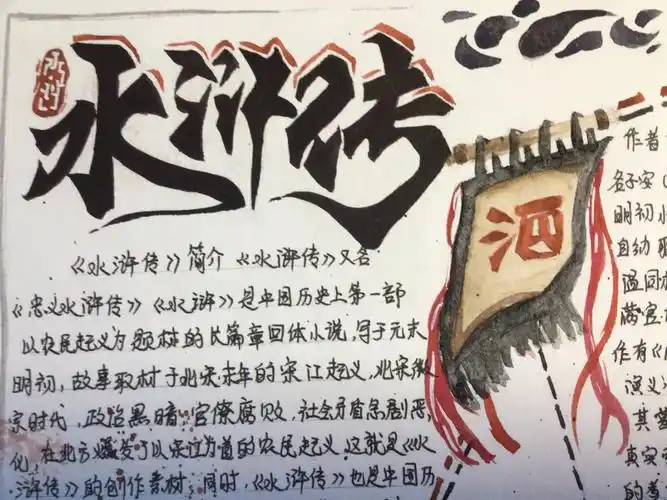 水浒传
酒
《水浒传》简介 《水浒传》又名
《忠义水浒传》《水浒》是中国历史上第一部
以农民起义为题材的长篇章回体小说,写于元末
明初,故事取材于北宋末年的宋江起义,北宋徽
宗时代,政治黑暗,官僚腐败,社会矛盾急剧恶
化,在北方爆发了以宋江为首的农民起义,这就是《水
浒传》的创作素材,同时,《水浒传》也是中国历
作者
名子安(
明初小
自动
温同
满官
作有《
演义
其
真实
的